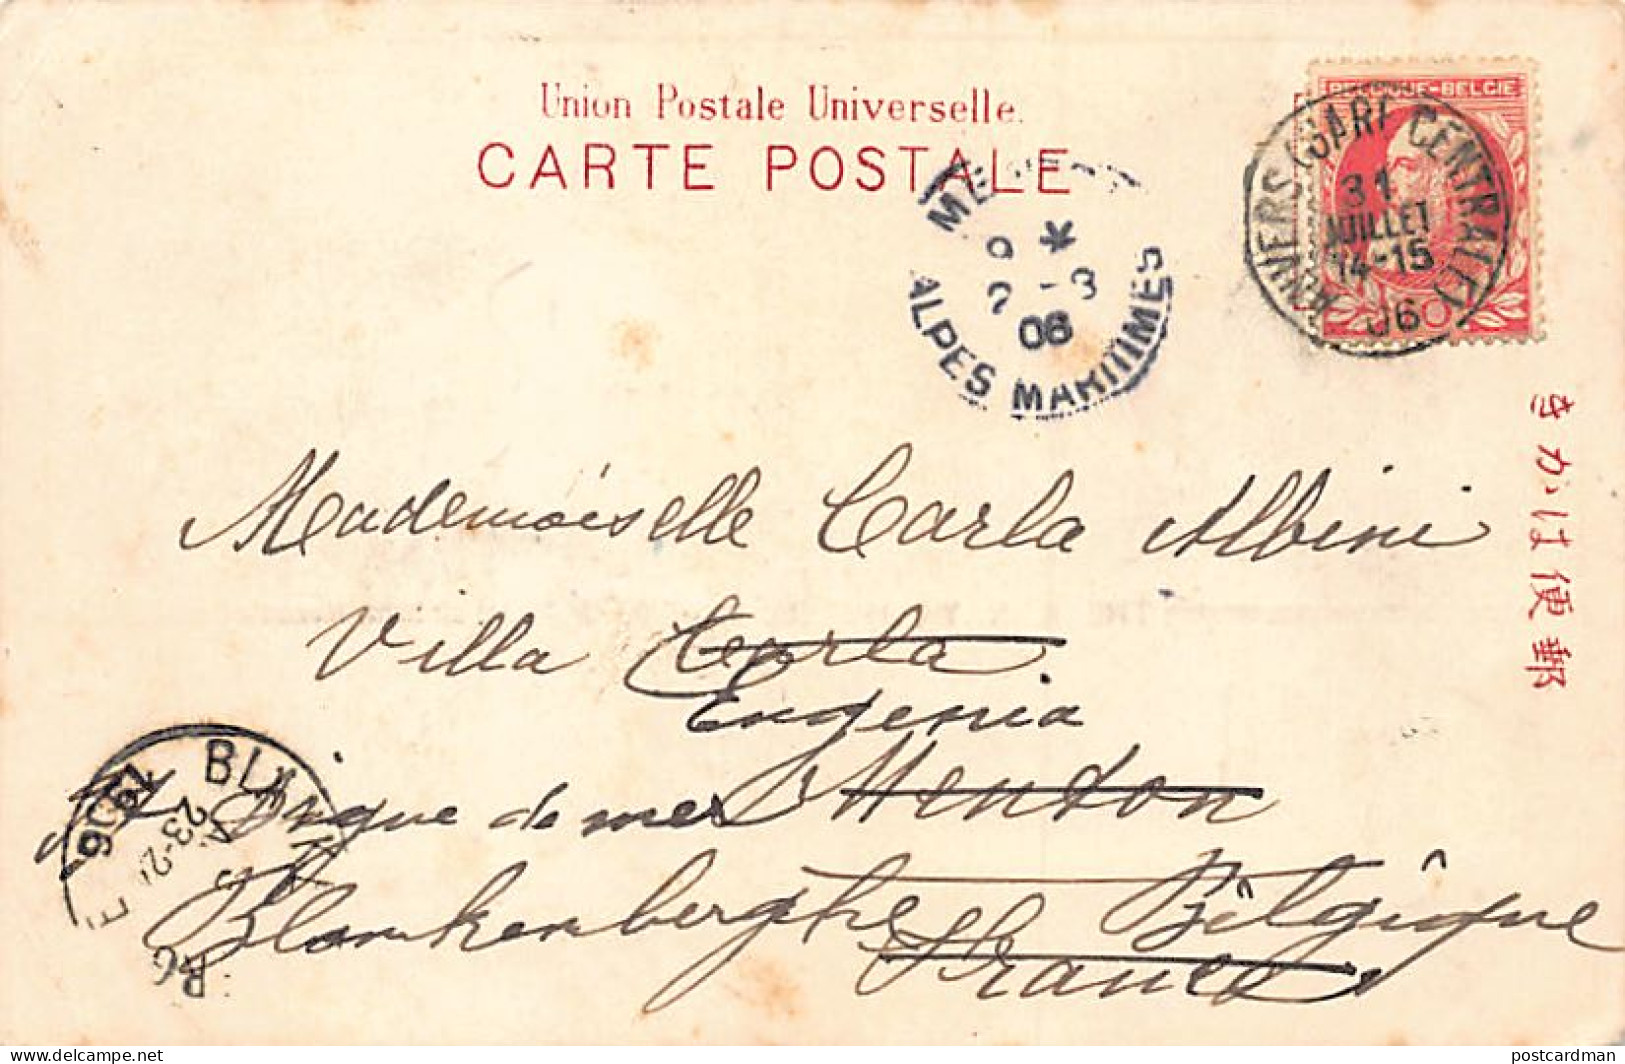 Union Postale Universelle.
CARTE POSTALE
BELGIQUE-BELGIE
ANVERS (GARE CENTRALE)
31
JUILLET
14-15
06
ALPES MARITIMES
*
08
きかは便郵
Mademoiselle Carla Albini
Villa Carla
Eugenia
Digue de mer Menton
Blankenberghe Bêlgique
France
1906
23-2
postcardman
delcampe.net